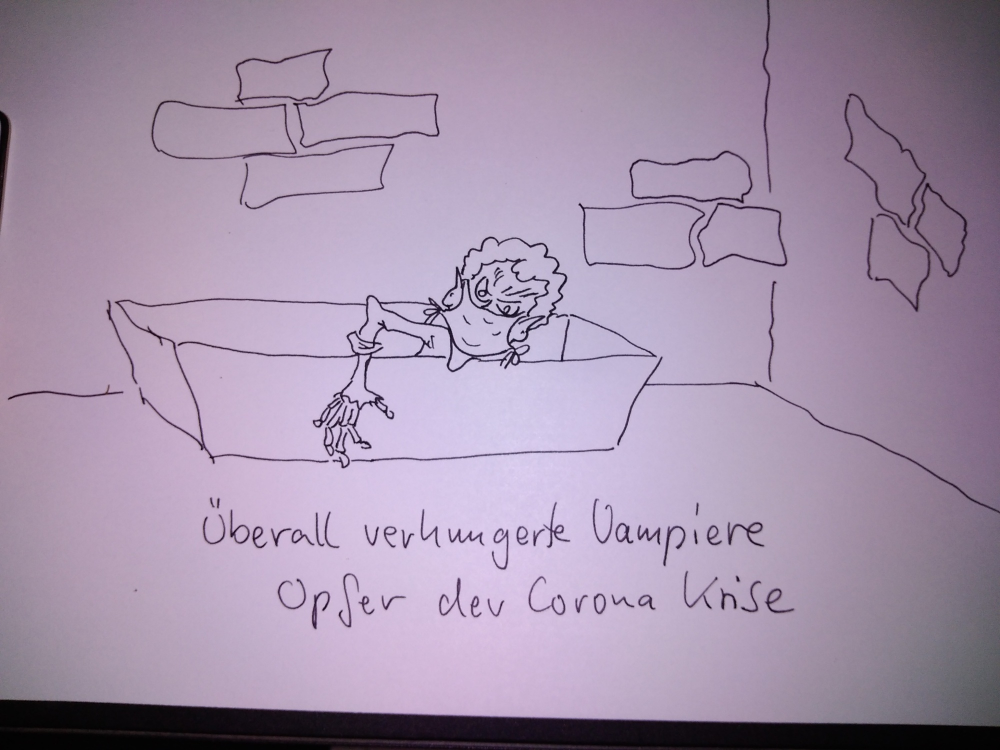 Überall verhungerte Vampiere
Opfer der Corona Krise